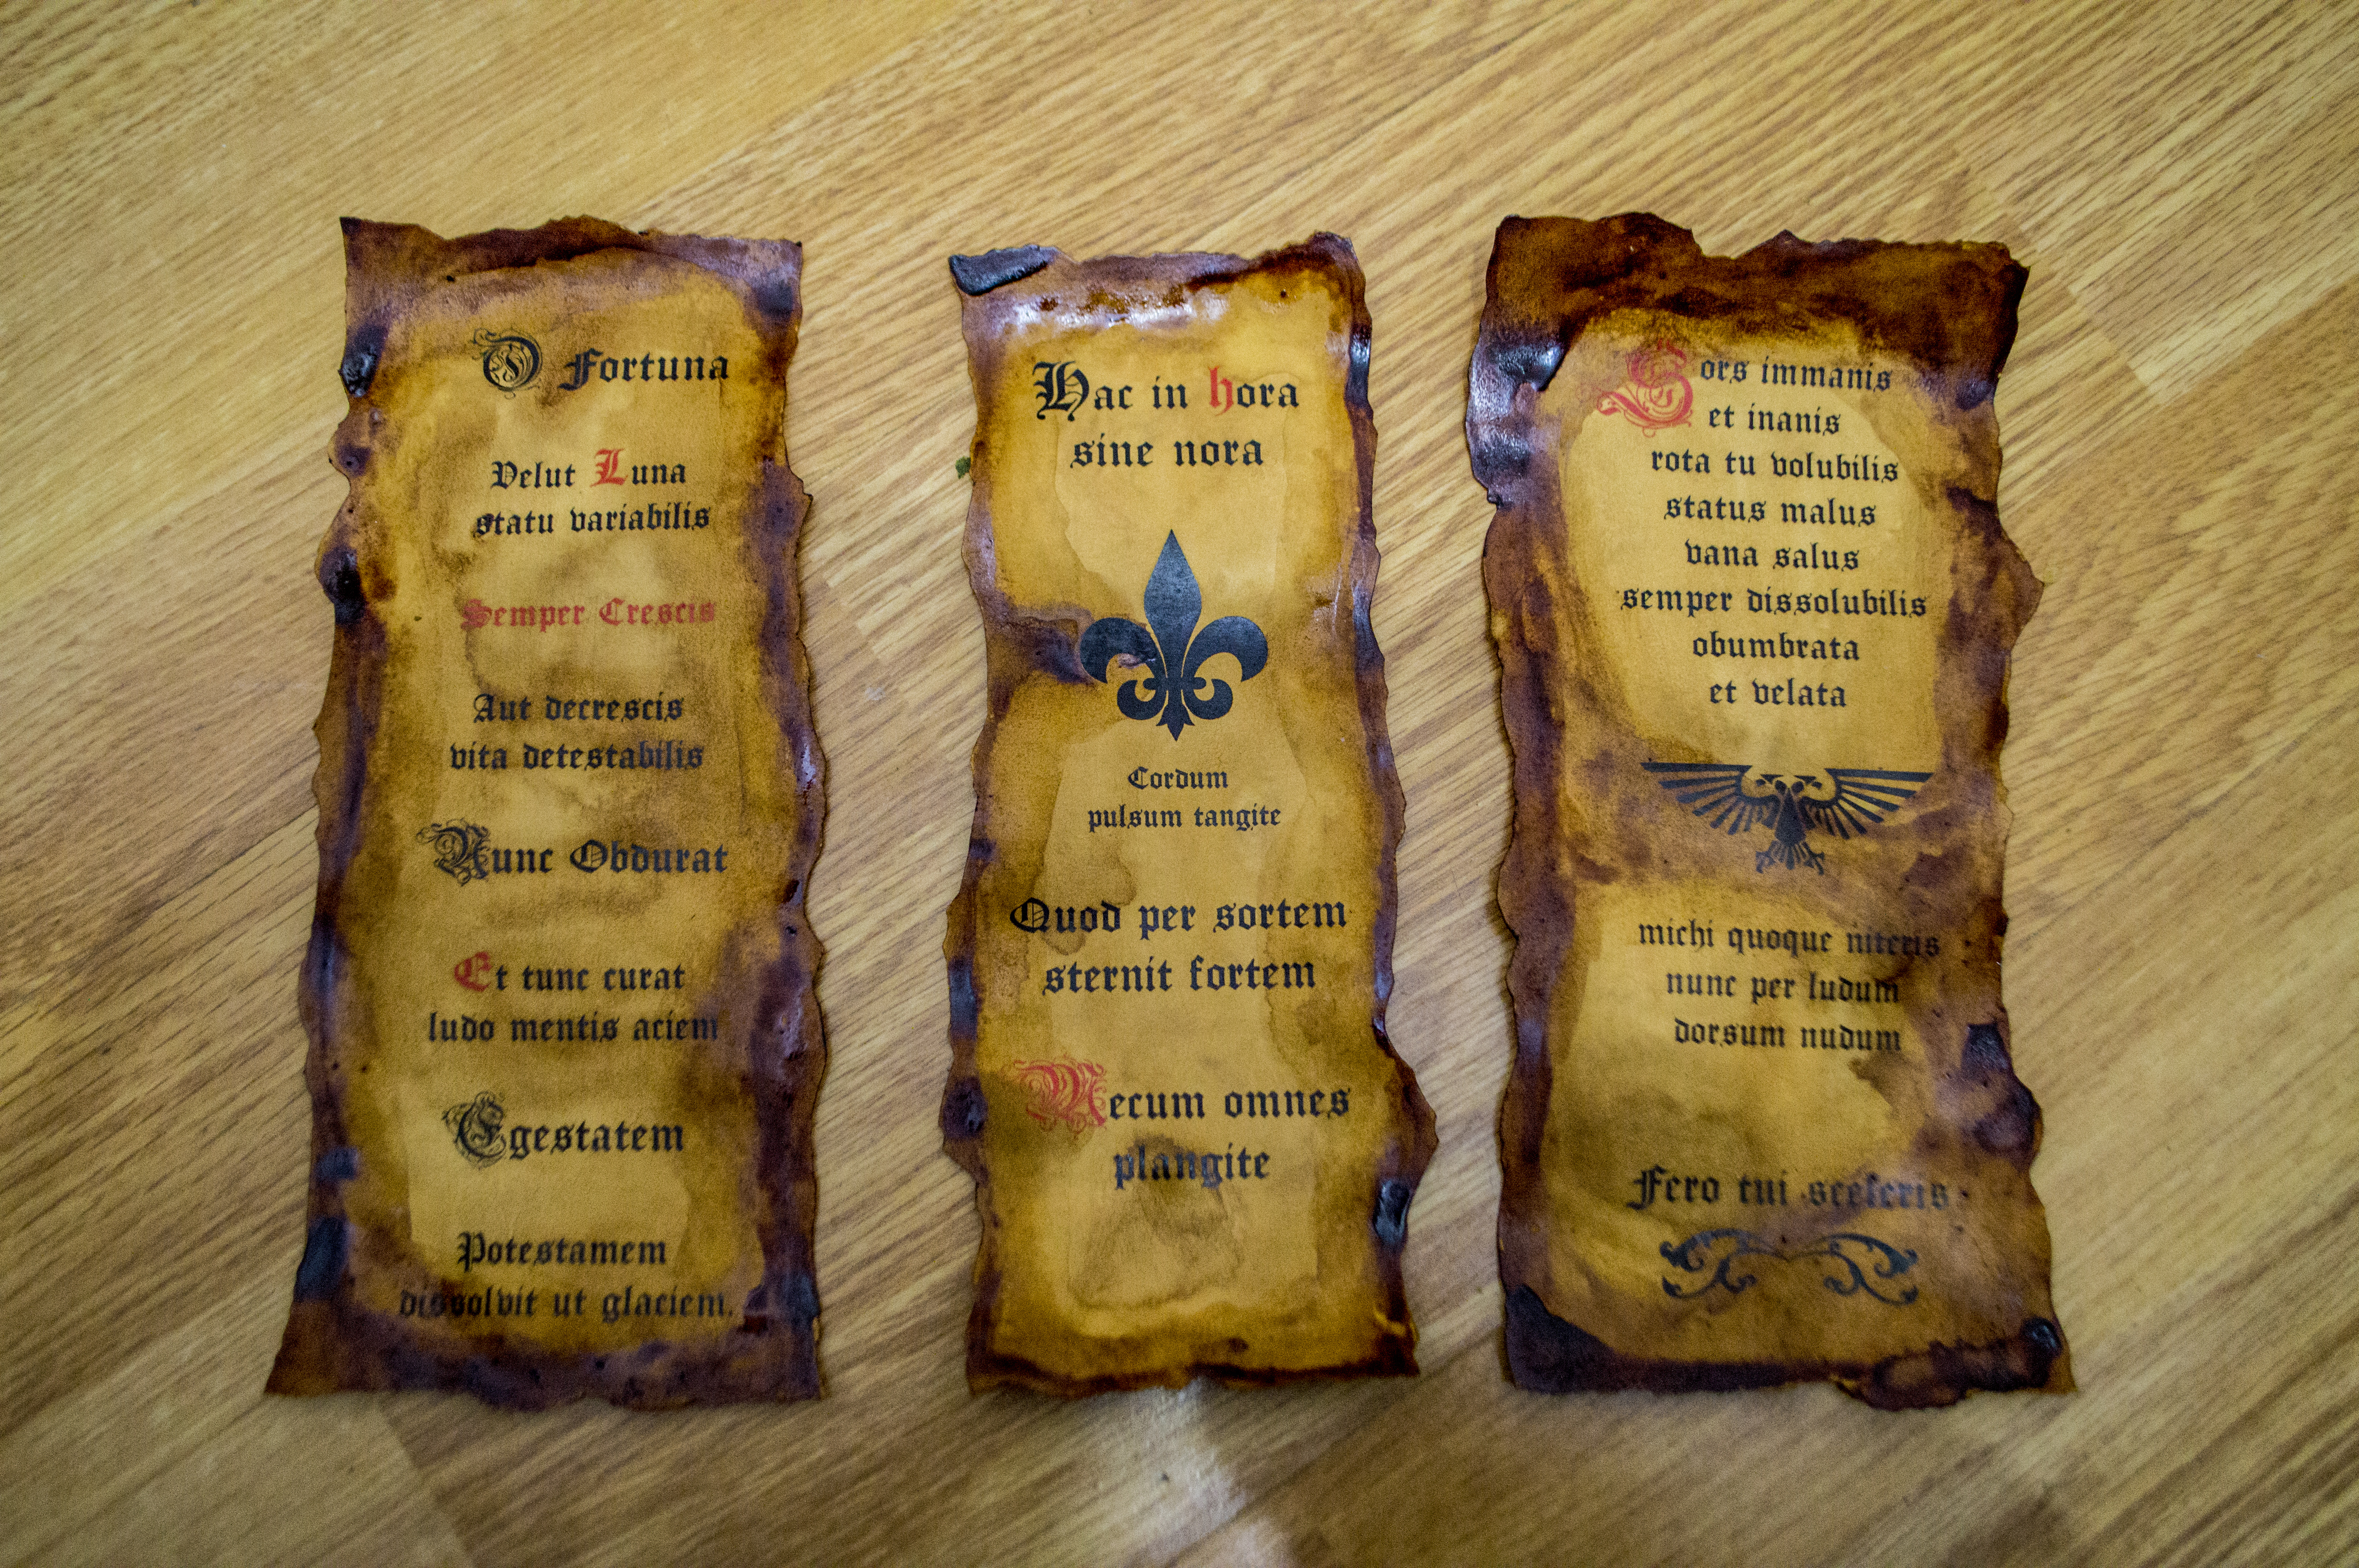 O Fortuna
Velut Luna
statu variabilis
Semper Crescis
Aut decrescis
vita detestabilis
Nunc Obdurat
Et tunc curat
ludo mentis aciem
Egestatem
Potestamem
dissolvit ut glaciem.
Hac in hora
sine nora
Cordum
pulsum tangite
Quod per sortem
sternit fortem
Mecum omnes
plangite
Sors immanis
et inanis
rota tu volubilis
status malus
vana salus
semper dissolubilis
obumbrata
et velata
michi quoque niteris
nunc per ludum
dorsum nudum
Fero tui sceleris